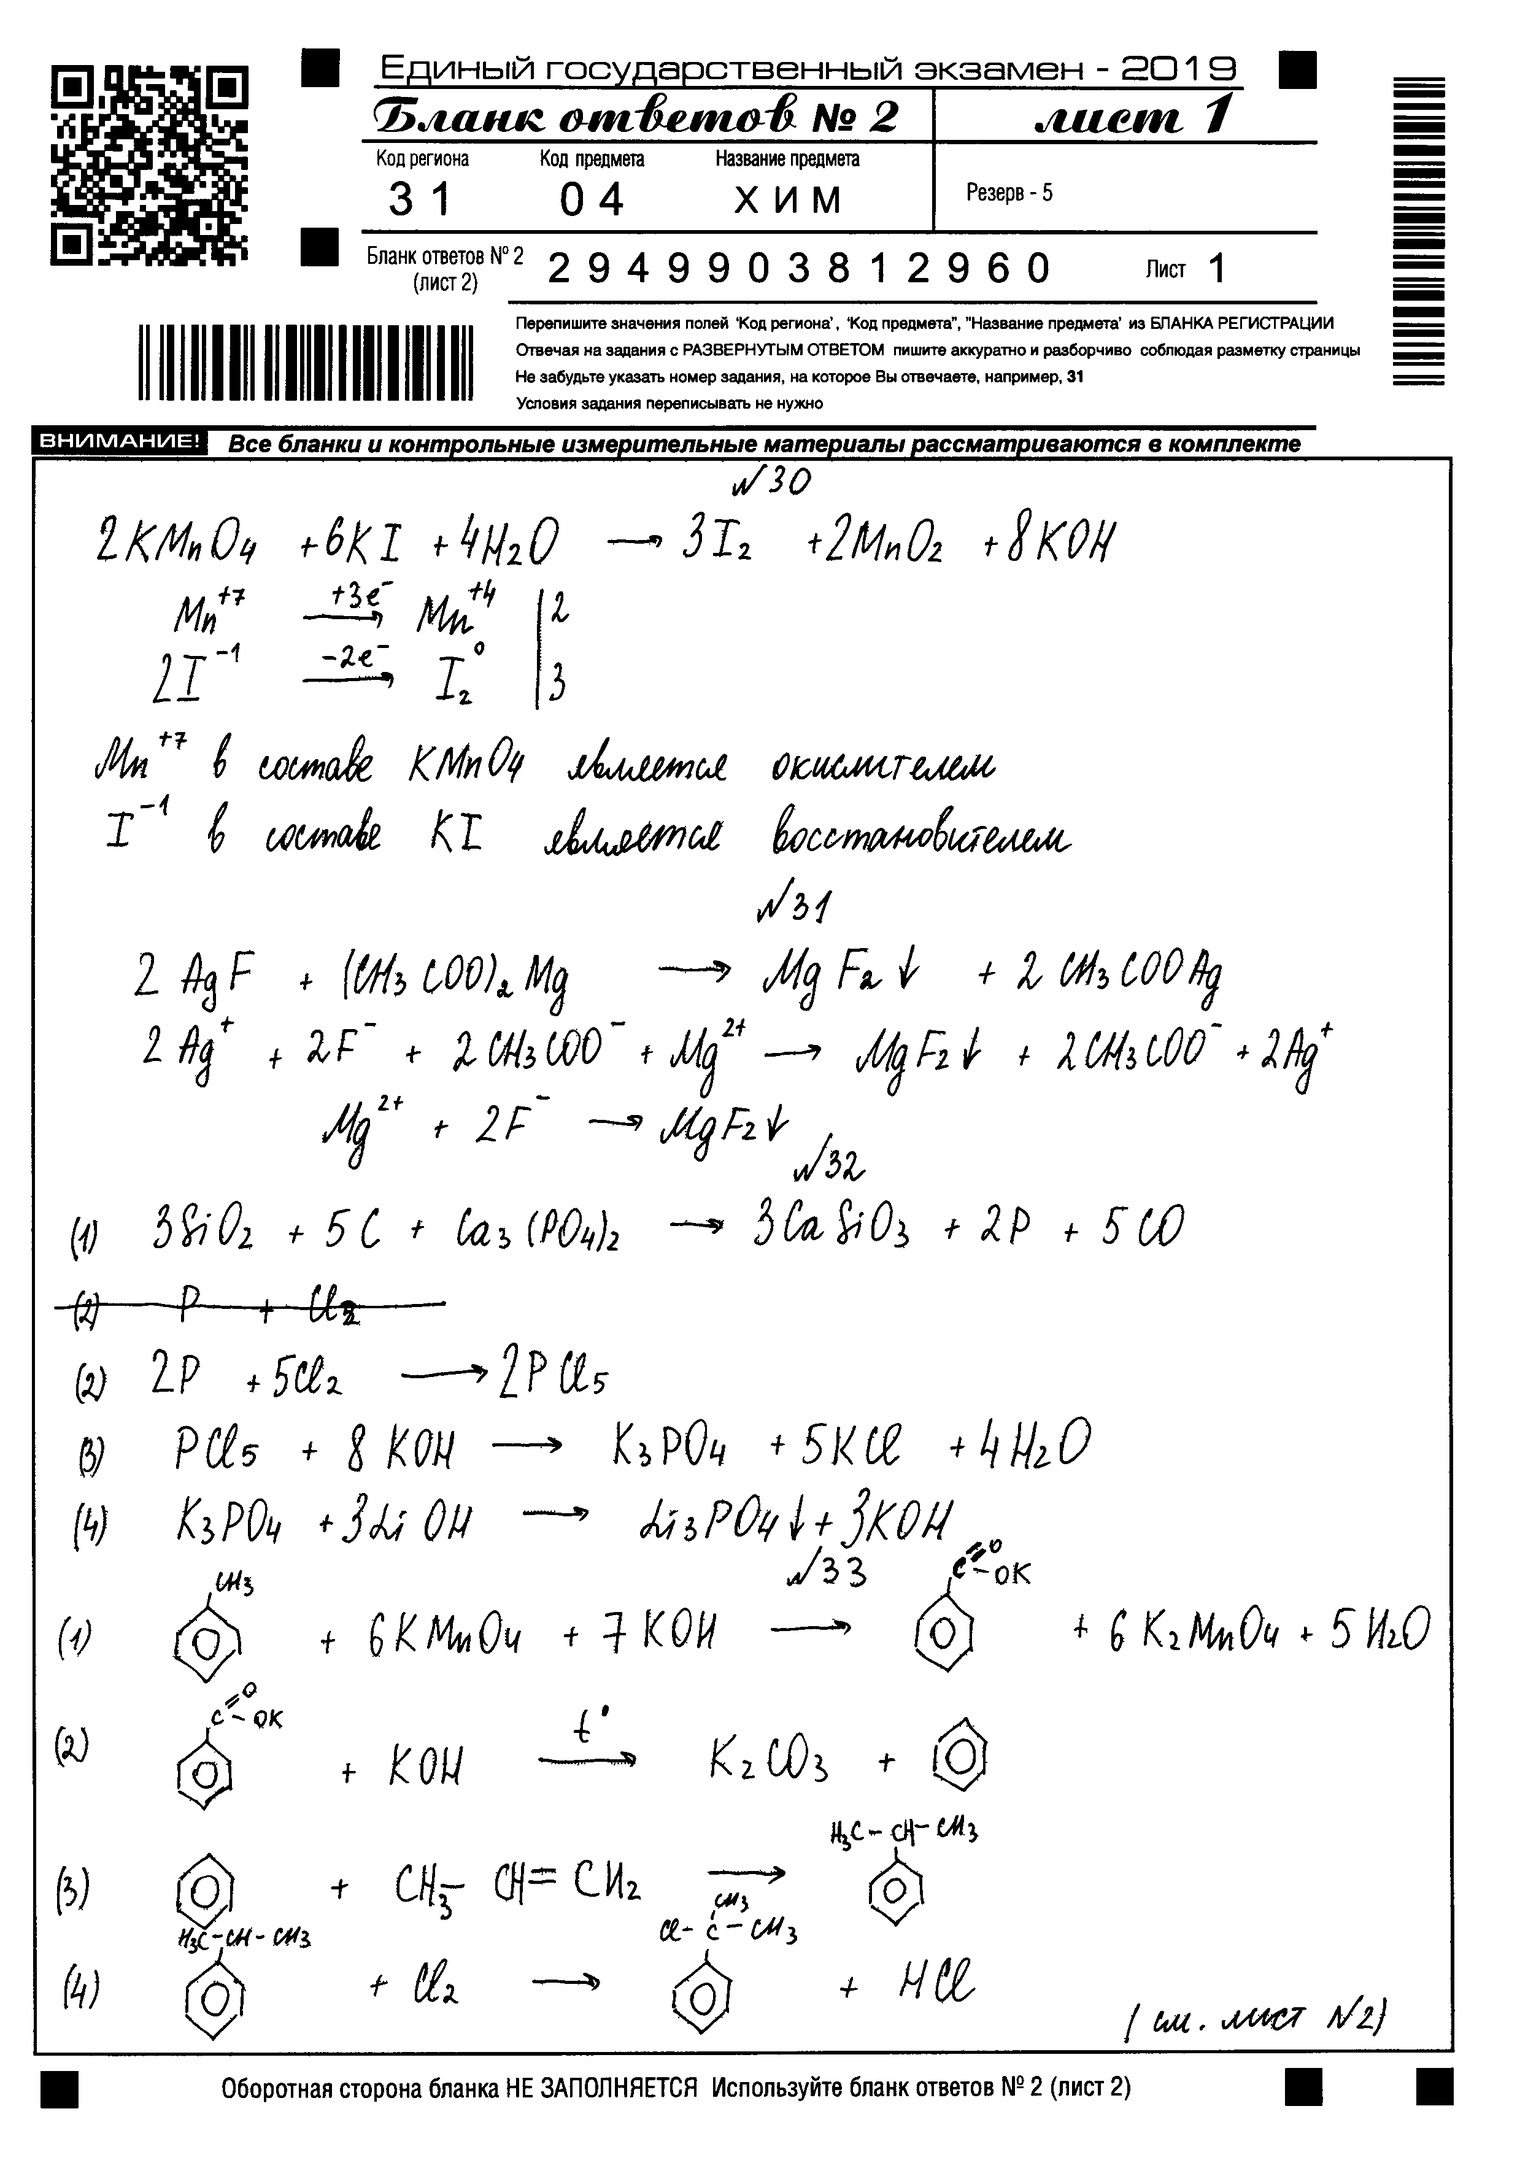 Единый государственный экзамен - 2019
Бланк ответов № 2 лист 1
Код региона Код предмета Название предмета
31 04 ХИМ Резерв - 5
Бланк ответов № 2 (лист 2) 2949903812960 Лист 1
Перепишите значения полей 'Код региона', 'Код предмета", "Название предмета' из БЛАНКА РЕГИСТРАЦИИ
Отвечая на задания с РАЗВЕРНУТЫМ ОТВЕТОМ пишите аккуратно и разборчиво соблюдая разметку страницы
Не забудьте указать номер задания, на которое Вы отвечаете, например, 31
Условия задания переписывать не нужно
ВНИМАНИЕ! Все бланки и контрольные измерительные материалы рассматриваются в комплекте
N30
2KMnO4 + 6KI + 4H2O → 3I2 + 2MnO2 + 8KOH
Mn+7 +3e- → Mn+4 | 2
2I-1 -2e- → I2 0 | 3
Mn+7 в составе KMnO4 является окислителем
I-1 в составе KI является восстановителем
N31
2 AgF + (CH3COO)2Mg → MgF2↓ + 2 CH3COOAg
2 Ag+ + 2F- + 2CH3COO- + Mg2+ → MgF2↓ + 2CH3COO- + 2Ag+
Mg2+ + 2F- → MgF2↓
N32
(1) 3SiO2 + 5C + Ca3(PO4)2 → 3CaSiO3 + 2P + 5CO
(2) P + Cl2
(2) 2P + 5Cl2 → 2PCl5
(3) PCl5 + 8KOH → K3PO4 + 5KCl + 4H2O
(4) K3PO4 + 3LiOH → Li3PO4↓ + 3KOH
N33
CH3 C=O -OK
(1) + 6KMnO4 + 7KOH → + 6K2MnO4 + 5H2O
C=O -OK
(2) + KOH t° → K2CO3 +
H3C-CH-CH3
(3) + CH3-CH=CH2 →
H3C-CH-CH3 CH3 Cl-C-CH3
(4) + Cl2 → + HCl
(см. лист N2)
Оборотная сторона бланка НЕ ЗАПОЛНЯЕТСЯ Используйте бланк ответов № 2 (лист 2)